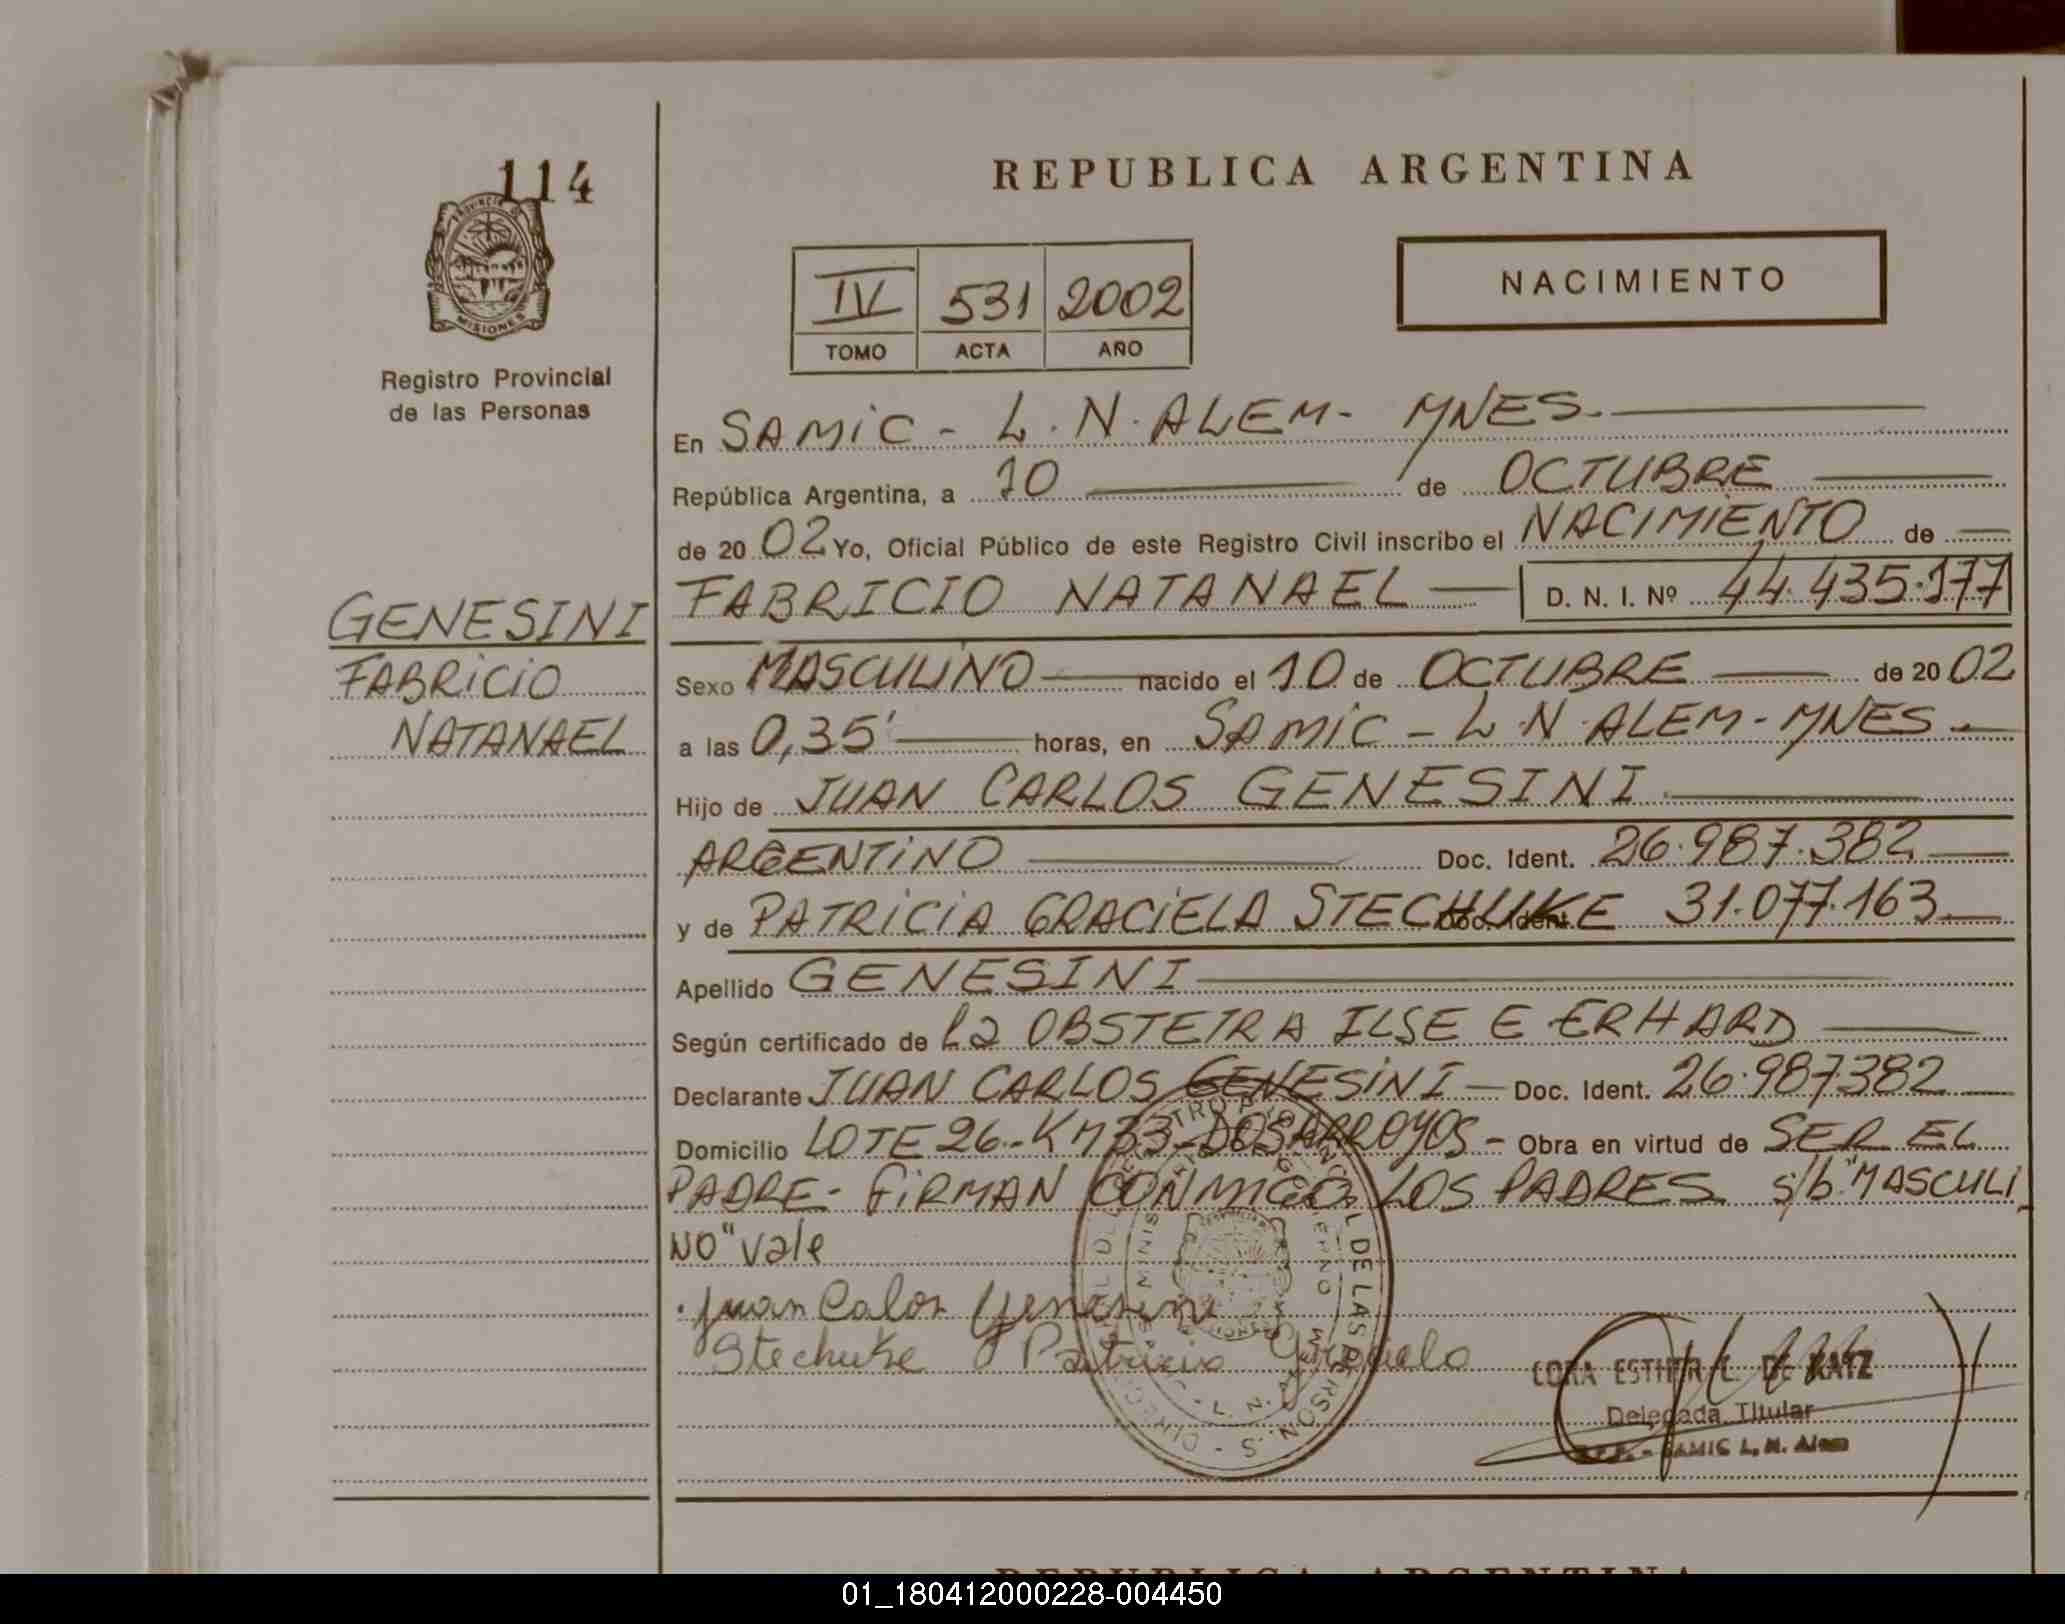 114
PROVINCIA DE
MISIONES
Registro Provincial
de las Personas
GENESINI
FABRICIO
NATANAEL
REPUBLICA ARGENTINA
IV 531 2002
TOMO ACTA AÑO
NACIMIENTO
En SAMIC - L.N. ALEM - MNES.
República Argentina, a 10 de OCTUBRE
de 2002 Yo, Oficial Público de este Registro Civil inscribo el NACIMIENTO de
FABRICIO NATANAEL D. N. I. Nº 44.435.177
Sexo MASCULINO nacido el 10 de OCTUBRE de 2002
a las 0,35' horas, en SAMIC - L.N. ALEM - MNES.
Hijo de JUAN CARLOS GENESINI
ARGENTINO Doc. Ident. 26.987.382
y de PATRICIA GRACIELA STECHUKE Doc. Ident. 31.077.163
Apellido GENESINI
Según certificado de la OBSTETRA ILSE E ERHARD
Declarante JUAN CARLOS GENESINI Doc. Ident. 26.987.382
Domicilio LOTE 26 - KM 33 - DOS ARROYOS - Obra en virtud de SER EL
PADRE - FIRMAN CONMIGO LOS PADRES s/b "MASCULI
NO" Vale
Juan Calos Genesini
Stechuke Patricia Graciela
CORA ESTHER L. DE KATZ
Delegada Titular
SAMIC L. N. Alem
REPUBLICA ARGENTINA
01_180412000228-004450